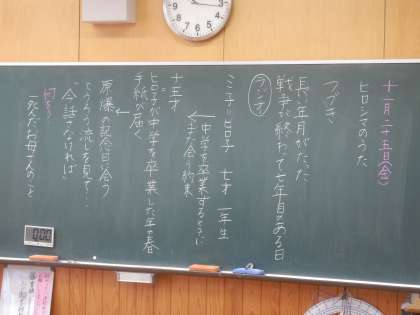 十一月二十五日(金)
ヒロシマのうた
つづき
長い年月がたった
戦争が終わって七年目のある日
ラジオ
ミ子=ヒロ子 七才 一年生
中学を卒業するときに
また会う約束
十五才
ヒロ子が中学を卒業した年の春
手紙が届く
原爆の記念日に会う
とうろう流しを見て…
「会話さなければ」
何を?
「死んだお母さんのこと